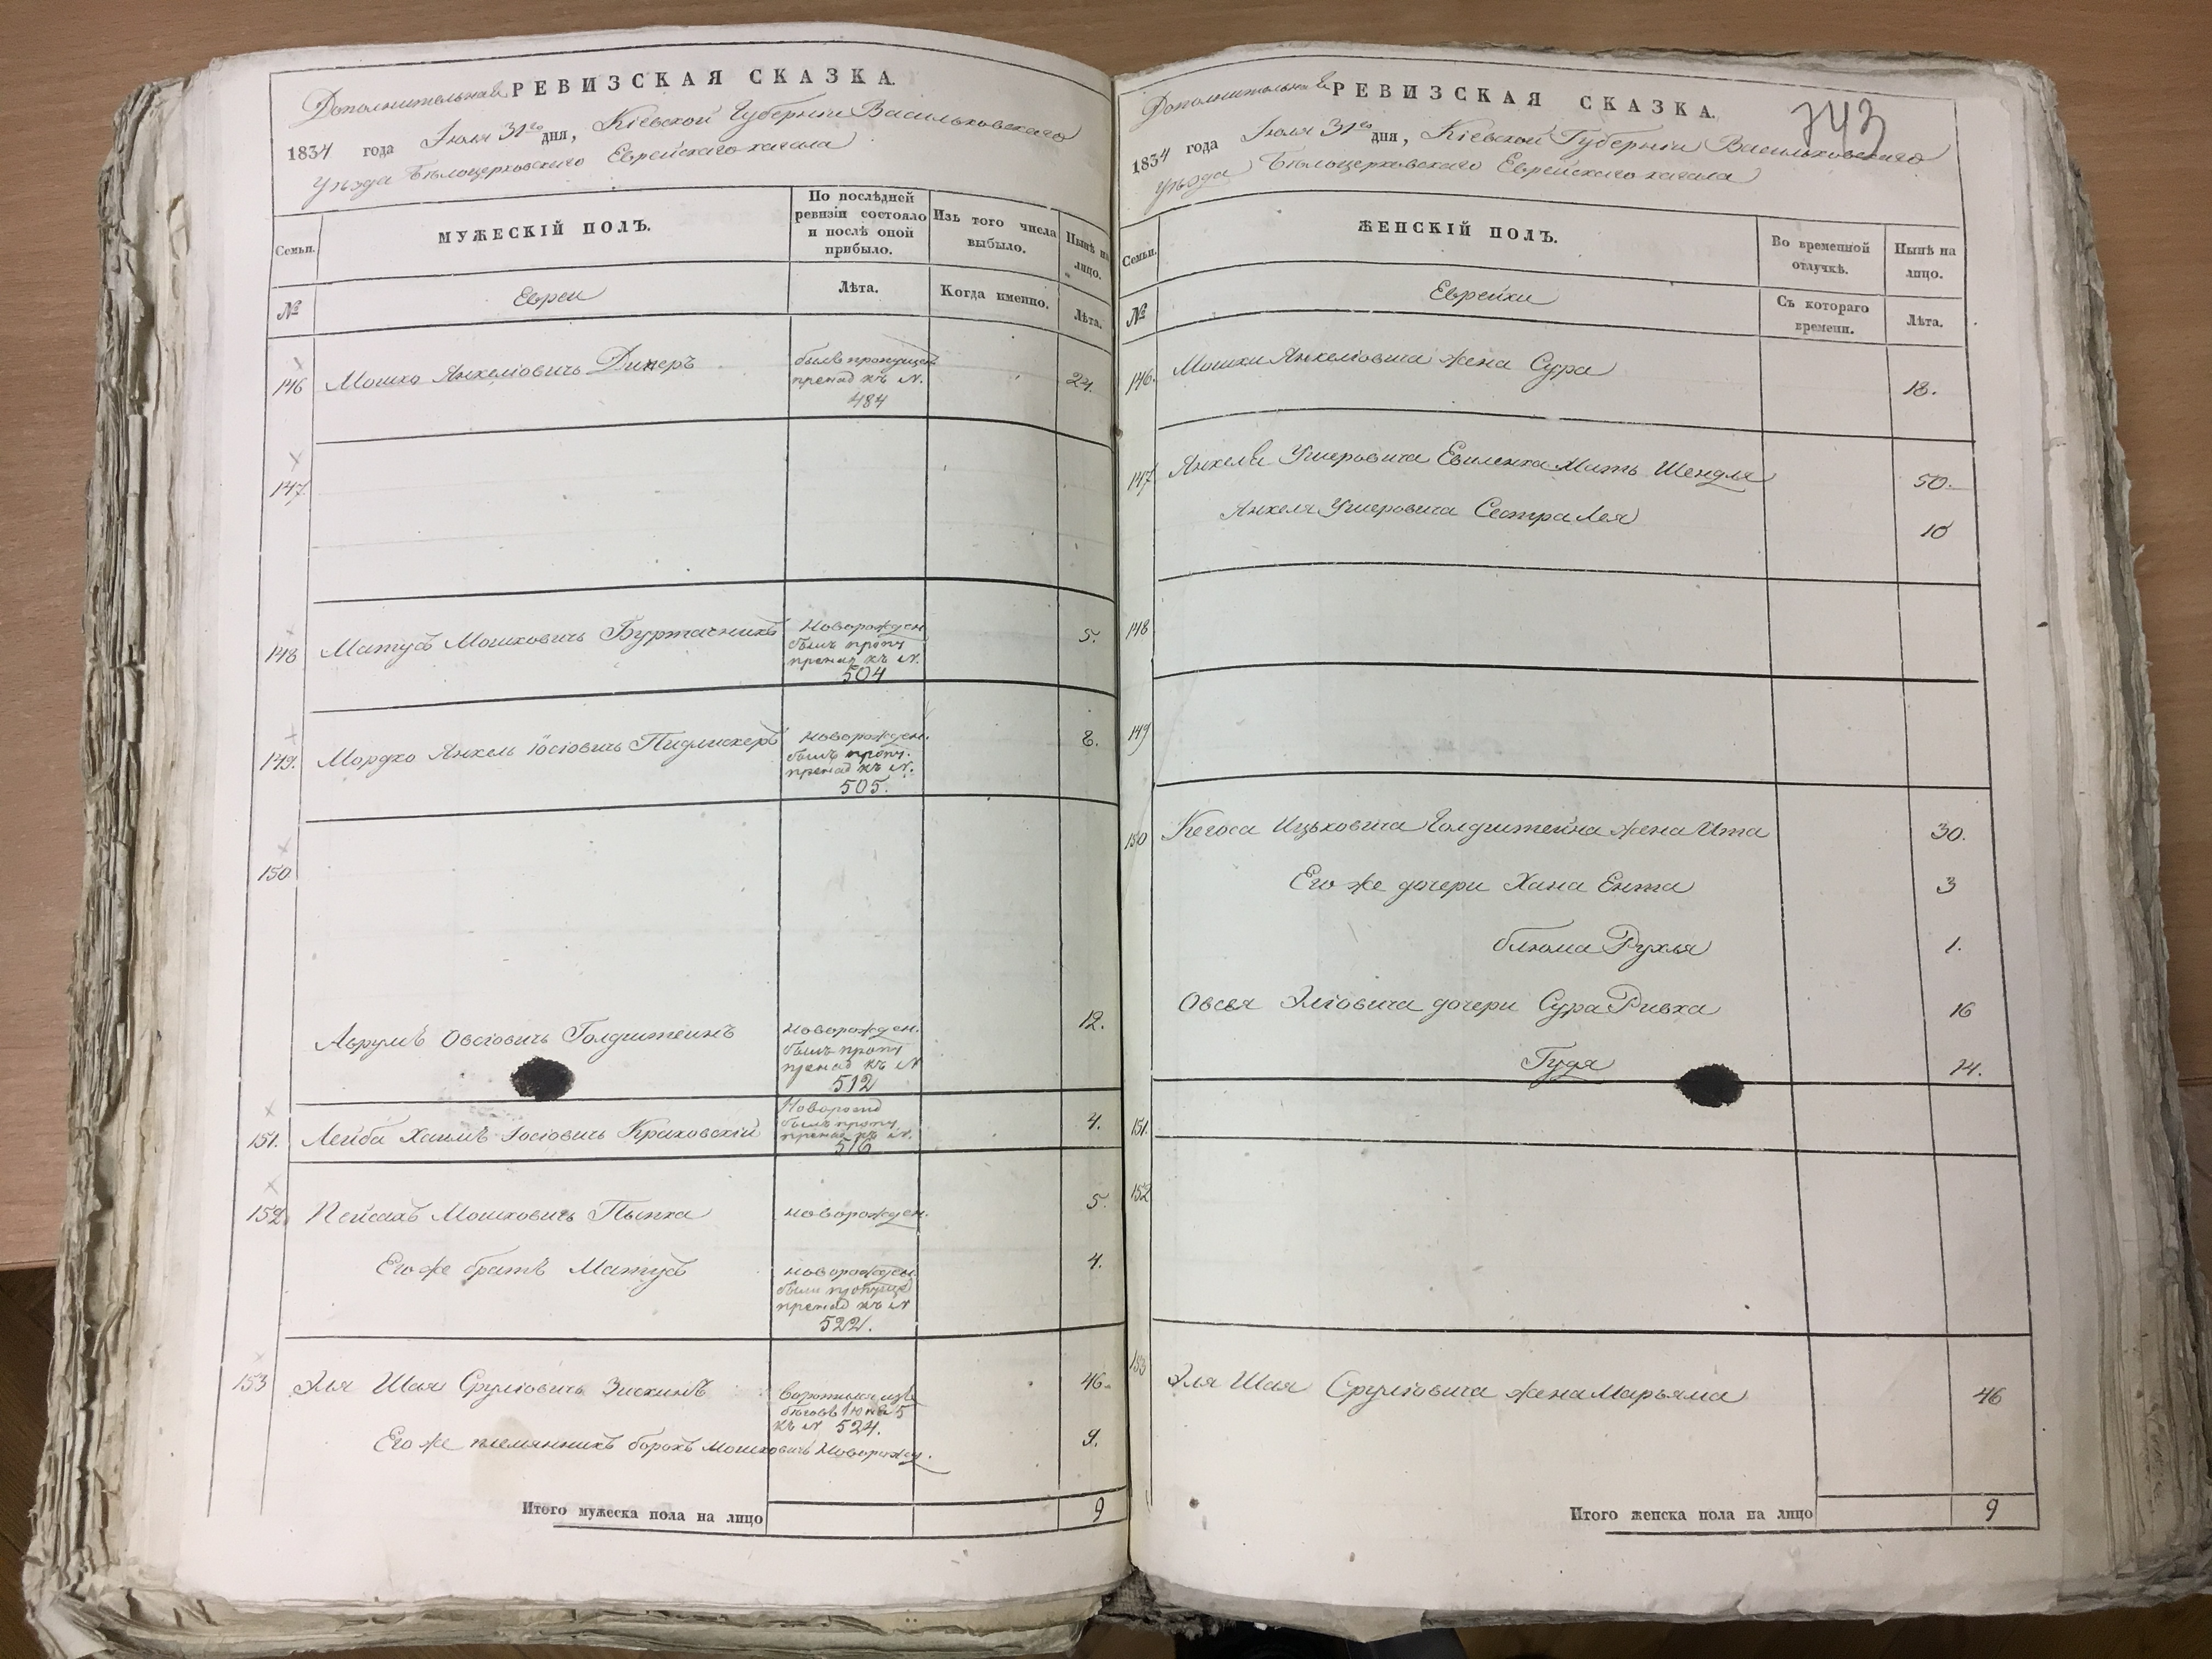 Дополнительная РЕВИЗСКАЯ СКАЗКА.
1834 года Іюля 31го дня, Кіевской Губерніи Васильковского
Уъзда Бълоцерковского Еврейскаго кагала
Семьи.
МУЖЕСКІЙ ПОЛЪ.
По послѣдней ревизіи состояло и послѣ оной прибыло.
Изъ того числа выбыло.
Нынѣ на лицо.
№
Евреи
Лѣта.
Когда именно.
Лѣта.
146 Мошко Янкеліовичь Динеръ
былъ пропущен
пренад къ N.
484
24.
147.
148 Матусъ Мошковичь Буртачникъ
Новорожден
былъ пропу
пренад къ N.
504
5.
149. Мордко Янкель Іосіовичь Пидлискеръ
новорожден.
былъ пропу.
пренад къ N.
505.
8.
150
Аврумъ Овсіовичь Голдштеинъ
новорожден.
былъ пропу
пренад къ N
512
12.
151. Лейба Хаимъ Іосіовичь Краковскій
Новорожд
былъ пропу
пренад къ N.
516
4.
152. Пейсахъ Мошковичь Пыпка
новорожден.
5.
Его же братъ Матусъ
новорожден.
были пропущ
пренад къ N
522.
4.
153 Эля Шая Сруліовичь Зискинъ
воротился изъ
бѣговъ 5
къ N 524.
46.
Его же племянникъ борохъ Мошковичь Новорожд.
9.
Итого мужеска пола на лицо
9
Дополнительная РЕВИЗСКАЯ СКАЗКА.
743
1834 года Іюля 31го дня, Кіевской Губерніи Васильковского
Уъзда Бълоцерковского Еврейскаго кагала
Семьи.
ЖЕНСКІЙ ПОЛЪ.
Во временной отлучкѣ.
Нынѣ на лицо.
№
Еврейки
Съ котораго времени.
Лѣта.
146. Мошки Янкеліовича жена Сура 18.
147 Янкеля Ушеровича Евиленка Мать Шендля 50.
Янкеля Ушеровича Сестра Лея 10
148
149
150 Ицьковича Голдштейна жена Ита 30.
Его же дочери Хана Ента 3
блюма Рухля 1.
Овсея Эліовича дочери Сура Ривка 16
Гудя 14.
151.
152
153 Эля Шая Сруліовича жена Марьяма 46
Итого женска пола на лицо
9